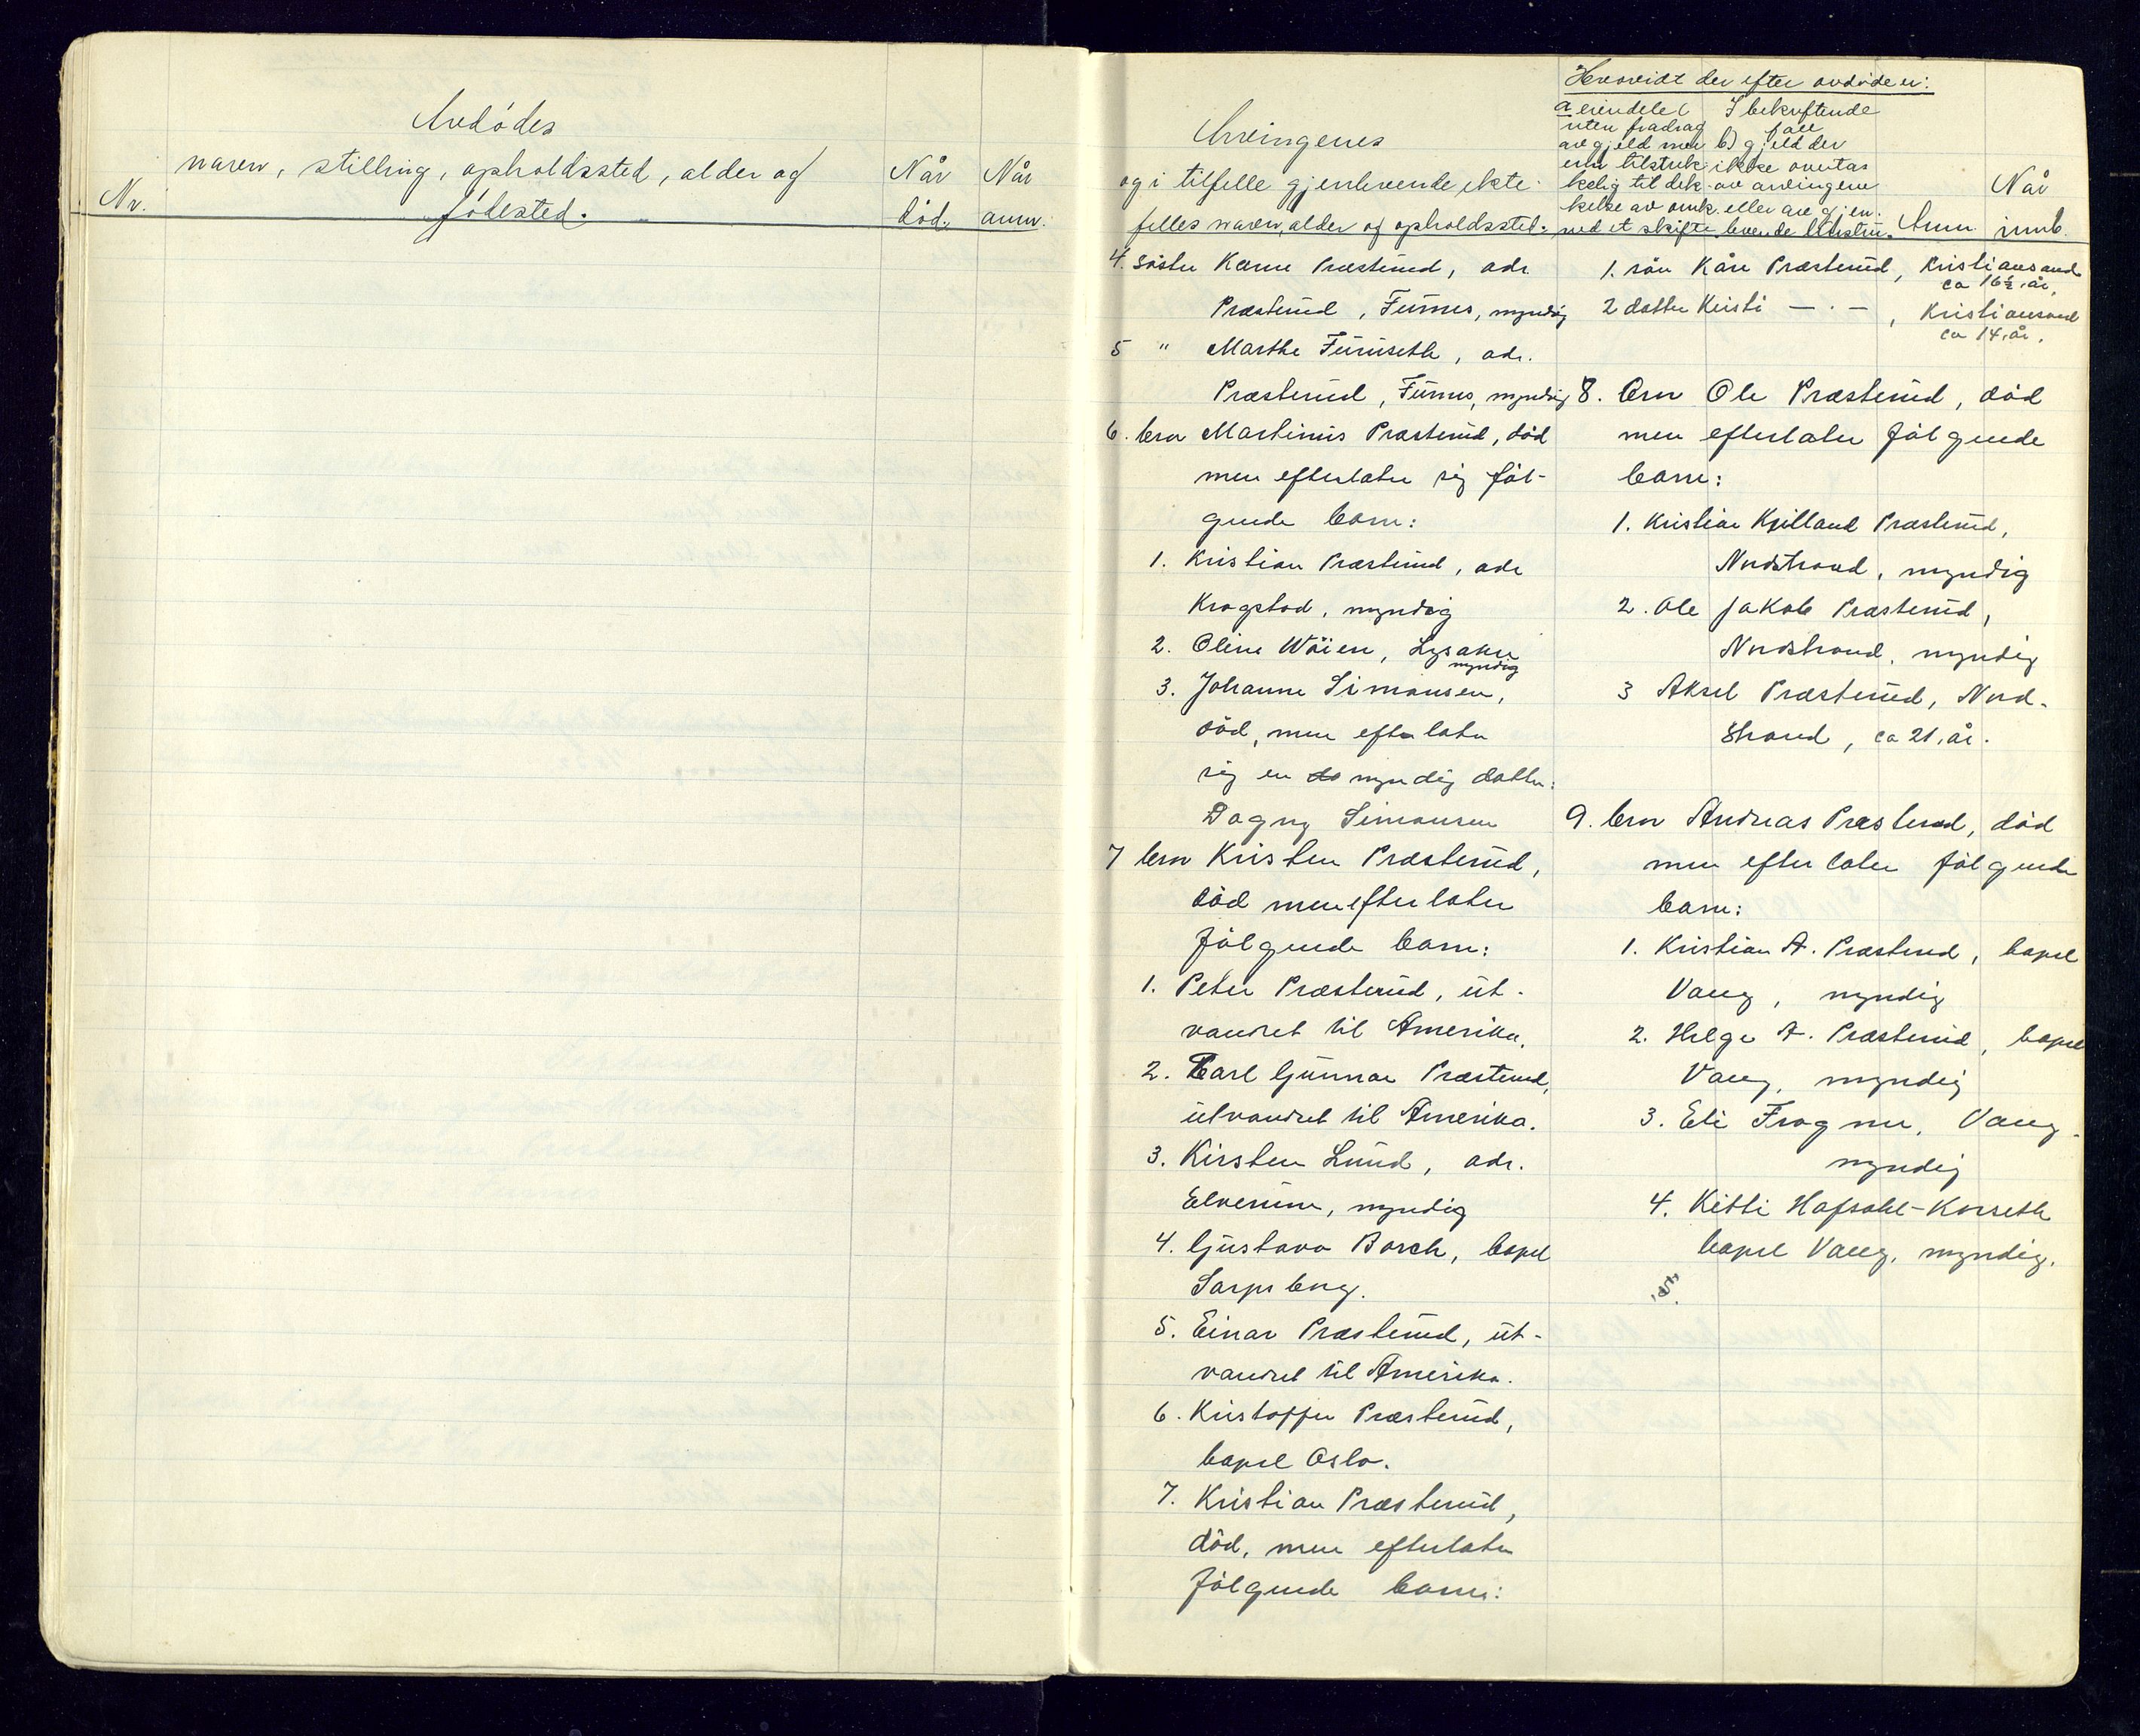 Avdödes
navn, stilling, opholdssted, alder og
Nr.
födested.
Når
död.
Når
anm.
Arvingenes
og i tilfelle gjenlevende ekte-
felles navn, alder og opholdssted.
Hvorvidt der efter avdöde er:
a eiendeler
uten fradrag
av gjeld men
enn tilstrek-
kelig til dek-
kelse av omk.
ved et skifte
I bekreftende
fall
b) gjeld der
ikke overtas
av arvingene
eller av gjen-
levende
Anm.
Når
innb.
4. söster Karne Præsterud, adr.
Præsterud, Furnes, myndig
5 " Marthe Furuseth, adr.
Præsterud, Furnes, myndig
6. bror Martinus Præsterud, död
men efterlater sig föl-
gende barn:
1. Kristian Præsterud, adr
Krogstad, myndig
2. Oline Wöien, Lysaker
myndig
3. Johanne Simonsen,
död, men efterlater
sig en do myndig datter:
Dagny Simonsen
7 bror Kristen Præsterud,
död men efterlater
fölgende barn:
1. Peter Præsterud, ut-
vandret til Amerika.
2. Carl Gunnar Præsterud,
utvandret til Amerika.
3. Kirsten Lund, adr.
Elverum, myndig
4. Gustava Borch, bopel
Sarpsborg.
5. Einar Præsterud, ut-
vandret til Amerika.
6. Kristoffer Præsterud,
bopel Oslo.
7. Kristian Præsterud,
död, men efterlater
fölgende barn:
1. sön Kåre Præsterud, Kristiansand
ca 16½ år,
2 datter Kirsti — · — , Kristiansand
ca 14 år.
8. bror Ole Præsterud, död
men efterlater fölgende
barn:
1. Kristian Kjilland Præsterud,
Nordstrand, myndig
2. Ole Jakob Præsterud,
Nordstrand, myndig
3 Aksel Præsterud, Nord-
strand, ca 21 år.
9. bror Andreas Præsterud, död
men efterlater fölgende
barn:
1. Kristian A. Præsterud, bopel
Vang, myndig
2. Helge A. Præsterud, bopel
Vang, myndig
3. Eli Frogner, Vang.
myndig
4. Kitti Hafsahl-Korseth
bopel Vang, myndig.